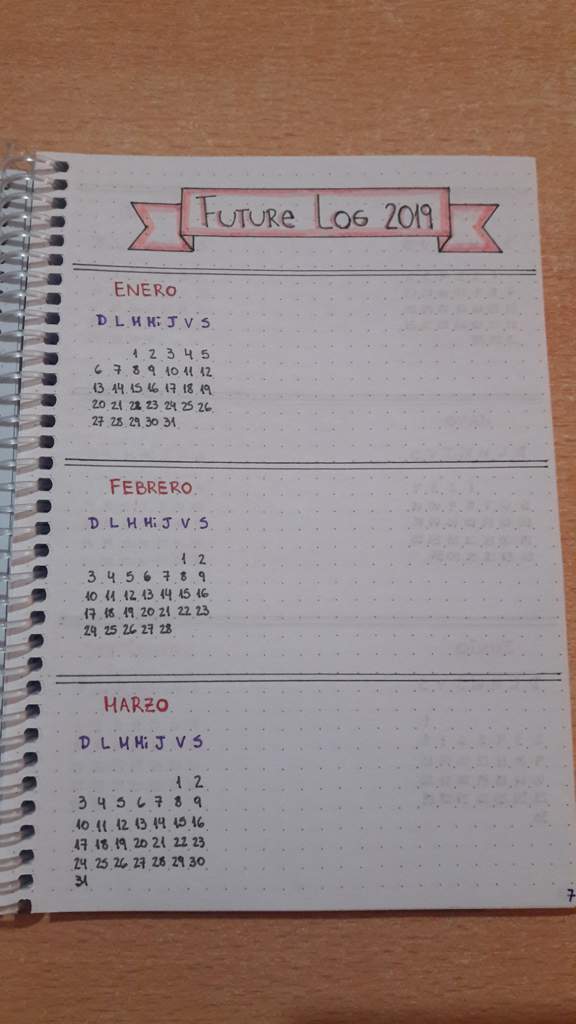 FUTURE LOG 2019
ENERO
D L M Mi J V S
1 2 3 4 5
6 7 8 9 10 11 12
13 14 15 16 17 18 19
20 21 22 23 24 25 26
27 28 29 30 31
FEBRERO
D L M Mi J V S
1 2
3 4 5 6 7 8 9
10 11 12 13 14 15 16
17 18 19 20 21 22 23
24 25 26 27 28
MARZO
D L M Mi J V S
1 2
3 4 5 6 7 8 9
10 11 12 13 14 15 16
17 18 19 20 21 22 23
24 25 26 27 28 29 30
31
7